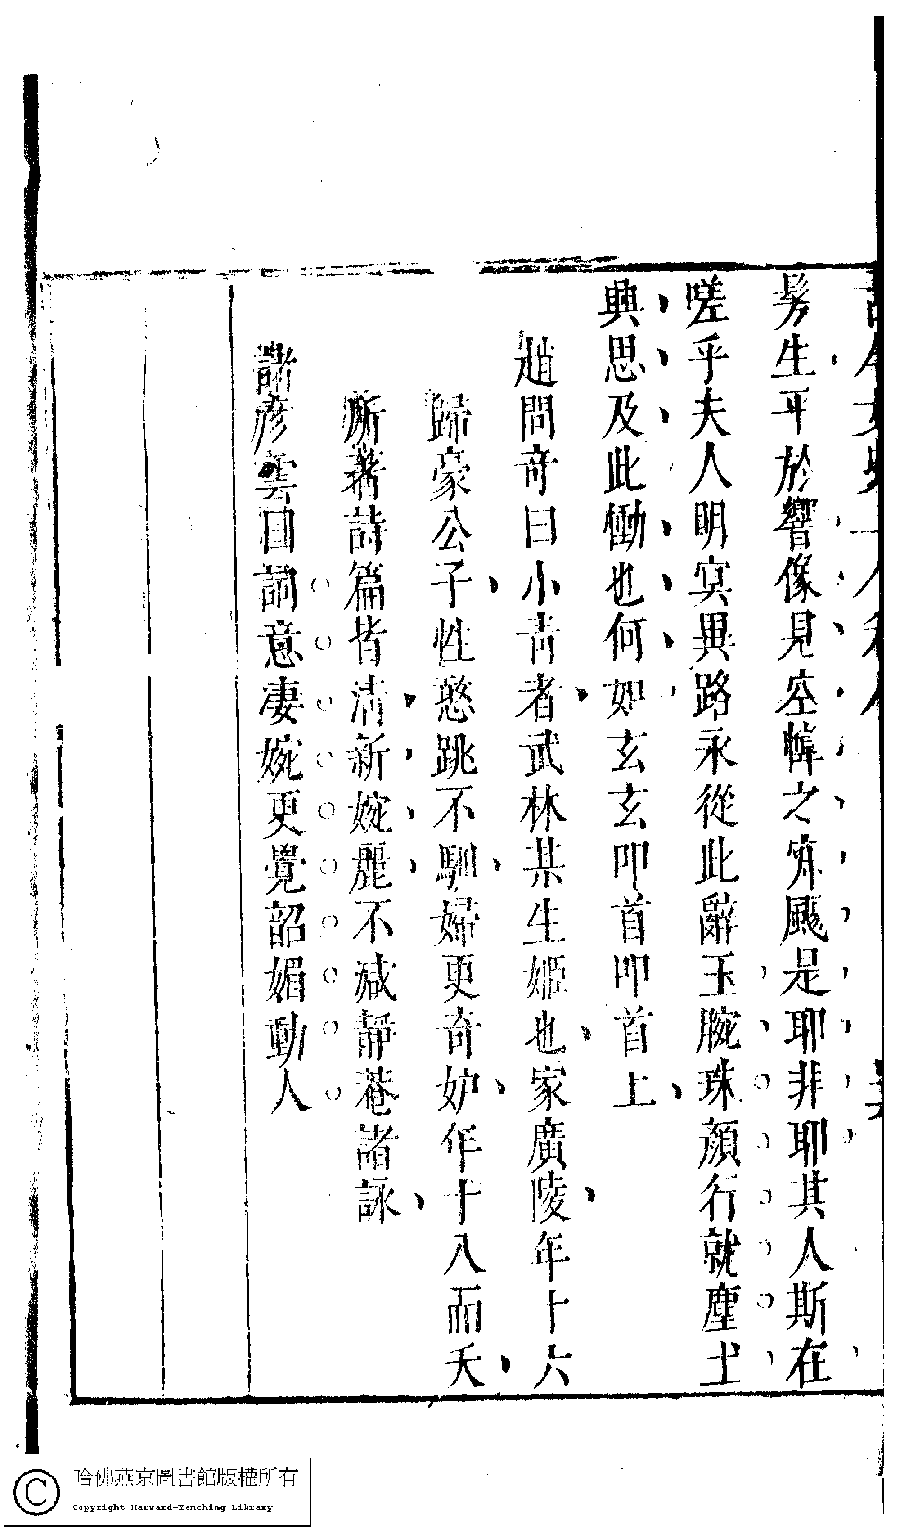 髣生平於響像見空幃之寂颺是耶非耶其人斯在
嗟乎夫人明冥異路永從此辭玉腕珠顏行就塵土
興思及此慟也何如玄玄叩首叩首上
趙問奇曰小青者武林某生姬也家廣陵年十六
歸豪公子性憨跳不馴婦更奇妒年十八而夭
所著詩篇皆清新婉麗不減靜菴諸詠
諸彥雲曰詞意凄婉更覺韶媚動人
哈佛燕京圖書館版權所有
Copyright Harvard-Yenching Library